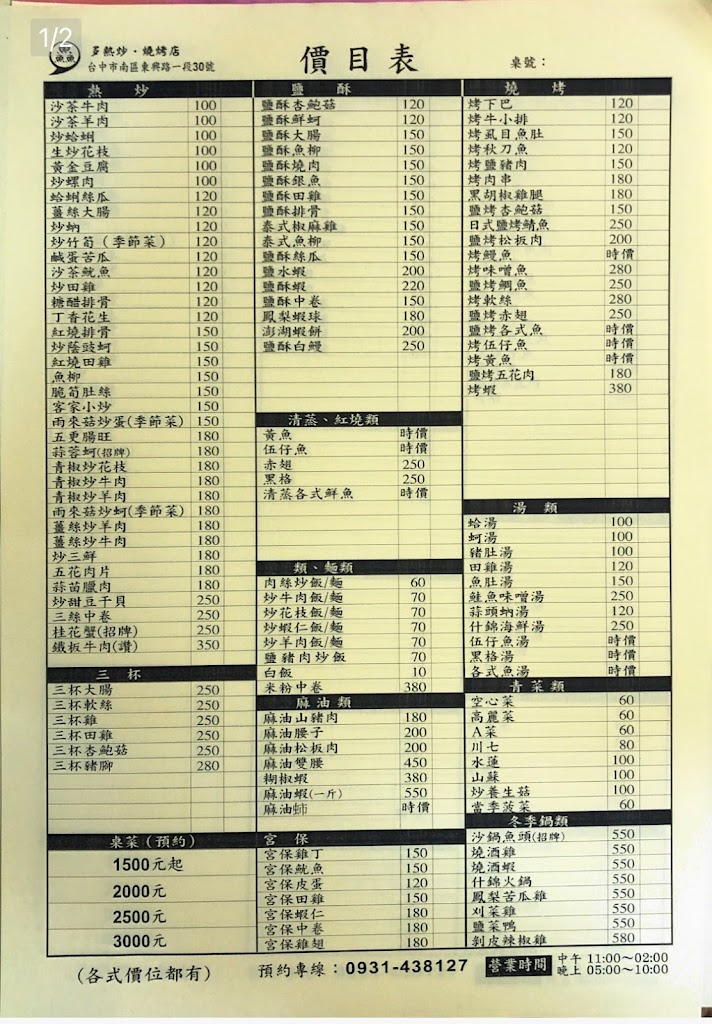 1/2
魚魚魚
多熱炒·燒烤店
台中市南區東興路一段30號
價目表
桌號：
熱 炒
沙茶牛肉 100
沙茶羊肉 100
炒蛤蜊 100
生炒花枝 100
黃金豆腐 100
炒螺肉 100
蛤蜊絲瓜 120
薑絲大腸 120
炒蚋 120
炒竹筍（季節菜） 120
鹹蛋苦瓜 120
沙茶魷魚 120
炒田雞 120
糖醋排骨 120
丁香花生 120
紅燒排骨 150
炒蔭豉蚵 150
紅燒田雞 150
魚柳 150
脆筍肚絲 150
客家小炒 150
雨來菇炒蛋(季節菜) 150
五更腸旺 180
蒜蓉蚵(招牌) 180
青椒炒花枝 180
青椒炒牛肉 180
青椒炒羊肉 180
雨來菇炒蚵(季節菜) 180
薑絲炒羊肉 180
薑絲炒牛肉 180
炒三鮮 180
五花肉片 180
蒜苗臘肉 180
炒甜豆干貝 250
三絲中卷 250
桂花蟹(招牌) 250
鐵板牛肉(讚) 350
三 杯
三杯大腸 250
三杯軟絲 250
三杯雞 250
三杯田雞 250
三杯杏鮑菇 250
三杯豬腳 280
桌菜(預約)
1500元起
2000元
2500元
3000元
(各式價位都有)
鹽 酥
鹽酥杏鮑菇 120
鹽酥鮮蚵 120
鹽酥大腸 150
鹽酥魚柳 150
鹽酥燒肉 150
鹽酥銀魚 150
鹽酥田雞 150
鹽酥排骨 150
泰式椒麻雞 150
泰式魚柳 150
鹽酥絲瓜 150
鹽水蝦 200
鹽酥蝦 220
鹽酥中卷 150
鳳梨蝦球 180
澎湖蝦餅 200
鹽酥白鰻 250
清蒸、紅燒類
黃魚 時價
伍仔魚 時價
赤翅 250
黑格 250
清蒸各式鮮魚 時價
類、麵類
肉絲炒飯/麵 60
炒牛肉飯/麵 70
炒花枝飯/麵 70
炒蝦仁飯/麵 70
炒羊肉飯/麵 70
鹽豬肉炒飯 70
白飯 10
米粉中卷 380
麻油類
麻油山豬肉 180
麻油腰子 200
麻油松板肉 200
麻油雙腰 450
糊椒蝦 380
麻油蝦(一斤) 550
麻油 時價
宮 保
宮保雞丁 150
宮保魷魚 150
宮保皮蛋 120
宮保田雞 150
宮保蝦仁 180
宮保中卷 180
宮保雞翅 180
燒 烤
烤下巴 120
烤牛小排 120
烤虱目魚肚 150
烤秋刀魚 120
烤鹽豬肉 150
烤肉串 180
黑胡椒雞腿 180
鹽烤杏鮑菇 150
日式鹽烤鯖魚 250
鹽烤松板肉 200
烤鰻魚 時價
烤味噌魚 280
鹽烤鯛魚 250
烤軟絲 280
鹽烤赤翅 250
鹽烤各式魚 時價
烤伍仔魚 時價
烤黃魚 時價
鹽烤五花肉 180
烤蝦 380
湯 類
蛤湯 100
蚵湯 100
豬肚湯 100
田雞湯 120
魚肚湯 150
鮭魚味噌湯 250
蒜頭蚋湯 120
什錦海鮮湯 250
伍仔魚湯 時價
黑格湯 時價
各式魚湯 時價
青菜類
空心菜 60
高麗菜 60
A菜 60
川七 80
水蓮 100
山蘇 100
炒養生菇 100
當季菠菜 60
冬季鍋類
沙鍋魚頭(招牌) 550
燒酒雞 550
燒酒蝦 550
什錦火鍋 550
鳳梨苦瓜雞 550
刈菜雞 550
鹽菜鴨 550
剝皮辣椒雞 580
預約專線：0931-438127
營業時間 中午 11:00～02:00
晚上 05:00～10:00